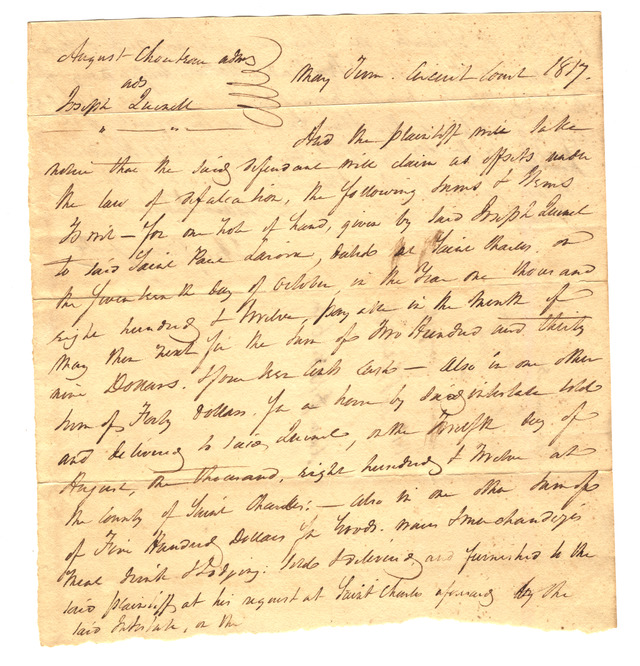 August Chouteau adms
ads
Joseph Quenell
May Term. Circuit Court 1817.
And the plaintiff will take
notice that the said defendant will claim as offsets under
the law of defalcation, the following sums & Items
To wit – for one not of hand, given by said Joseph Quenel
to said Saint Paul, dated at Saint Charles on
the Seventeenth day of October, in the Year one thousand
eight hundred & Twelve, payable in the Month of
May then next for the sum of Two Hundred and thirty
nine Dollars. & four teen Cents Cash – Also in one other
Sum of Forty Dollars. for a horse by said intestate sold
and delivered to said Quenel, on the Twelfth day of
August, one thousand, eight hundred & Twelve at
the County of Saint Charles: – Also in one other Sum of
of Five Hundred Dollars for Goods. wares & merchandizes
Meat drink & Lodging: Sold & delivered and furnished to the
said plaintiff at his request at Saint Charles aforesaid by the
said Intestate, on the